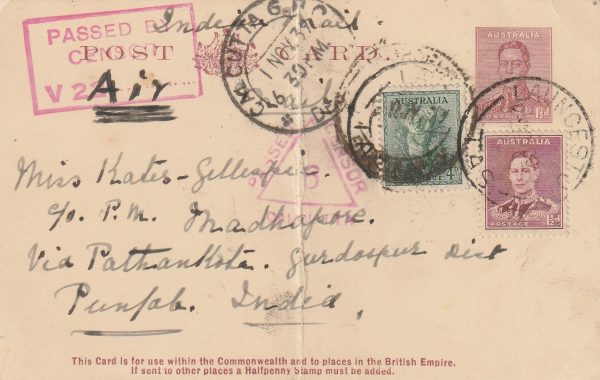 PASSED BY
CENSOR
V 22
Indian Mail.
POST CARD.
Air
Mail
CALCUTTA G.P.O.
1 NOV. 39
6.30 P.M.
AUSTRALIA
POSTAGE 1½D
AUSTRALIA
4D
AUSTRALIA
POSTAGE 1½D
LAUNCESTON
TAS
PASSED CENSOR
8
CALCUTTA
Miss Kates-Gillespie.
c/o P.M. Madhopore.
Via Pathankote. Gurdaspur Dist
Punjab. India.
This Card is for use within the Commonwealth and to places in the British Empire.
If sent to other places a Halfpenny Stamp must be added.